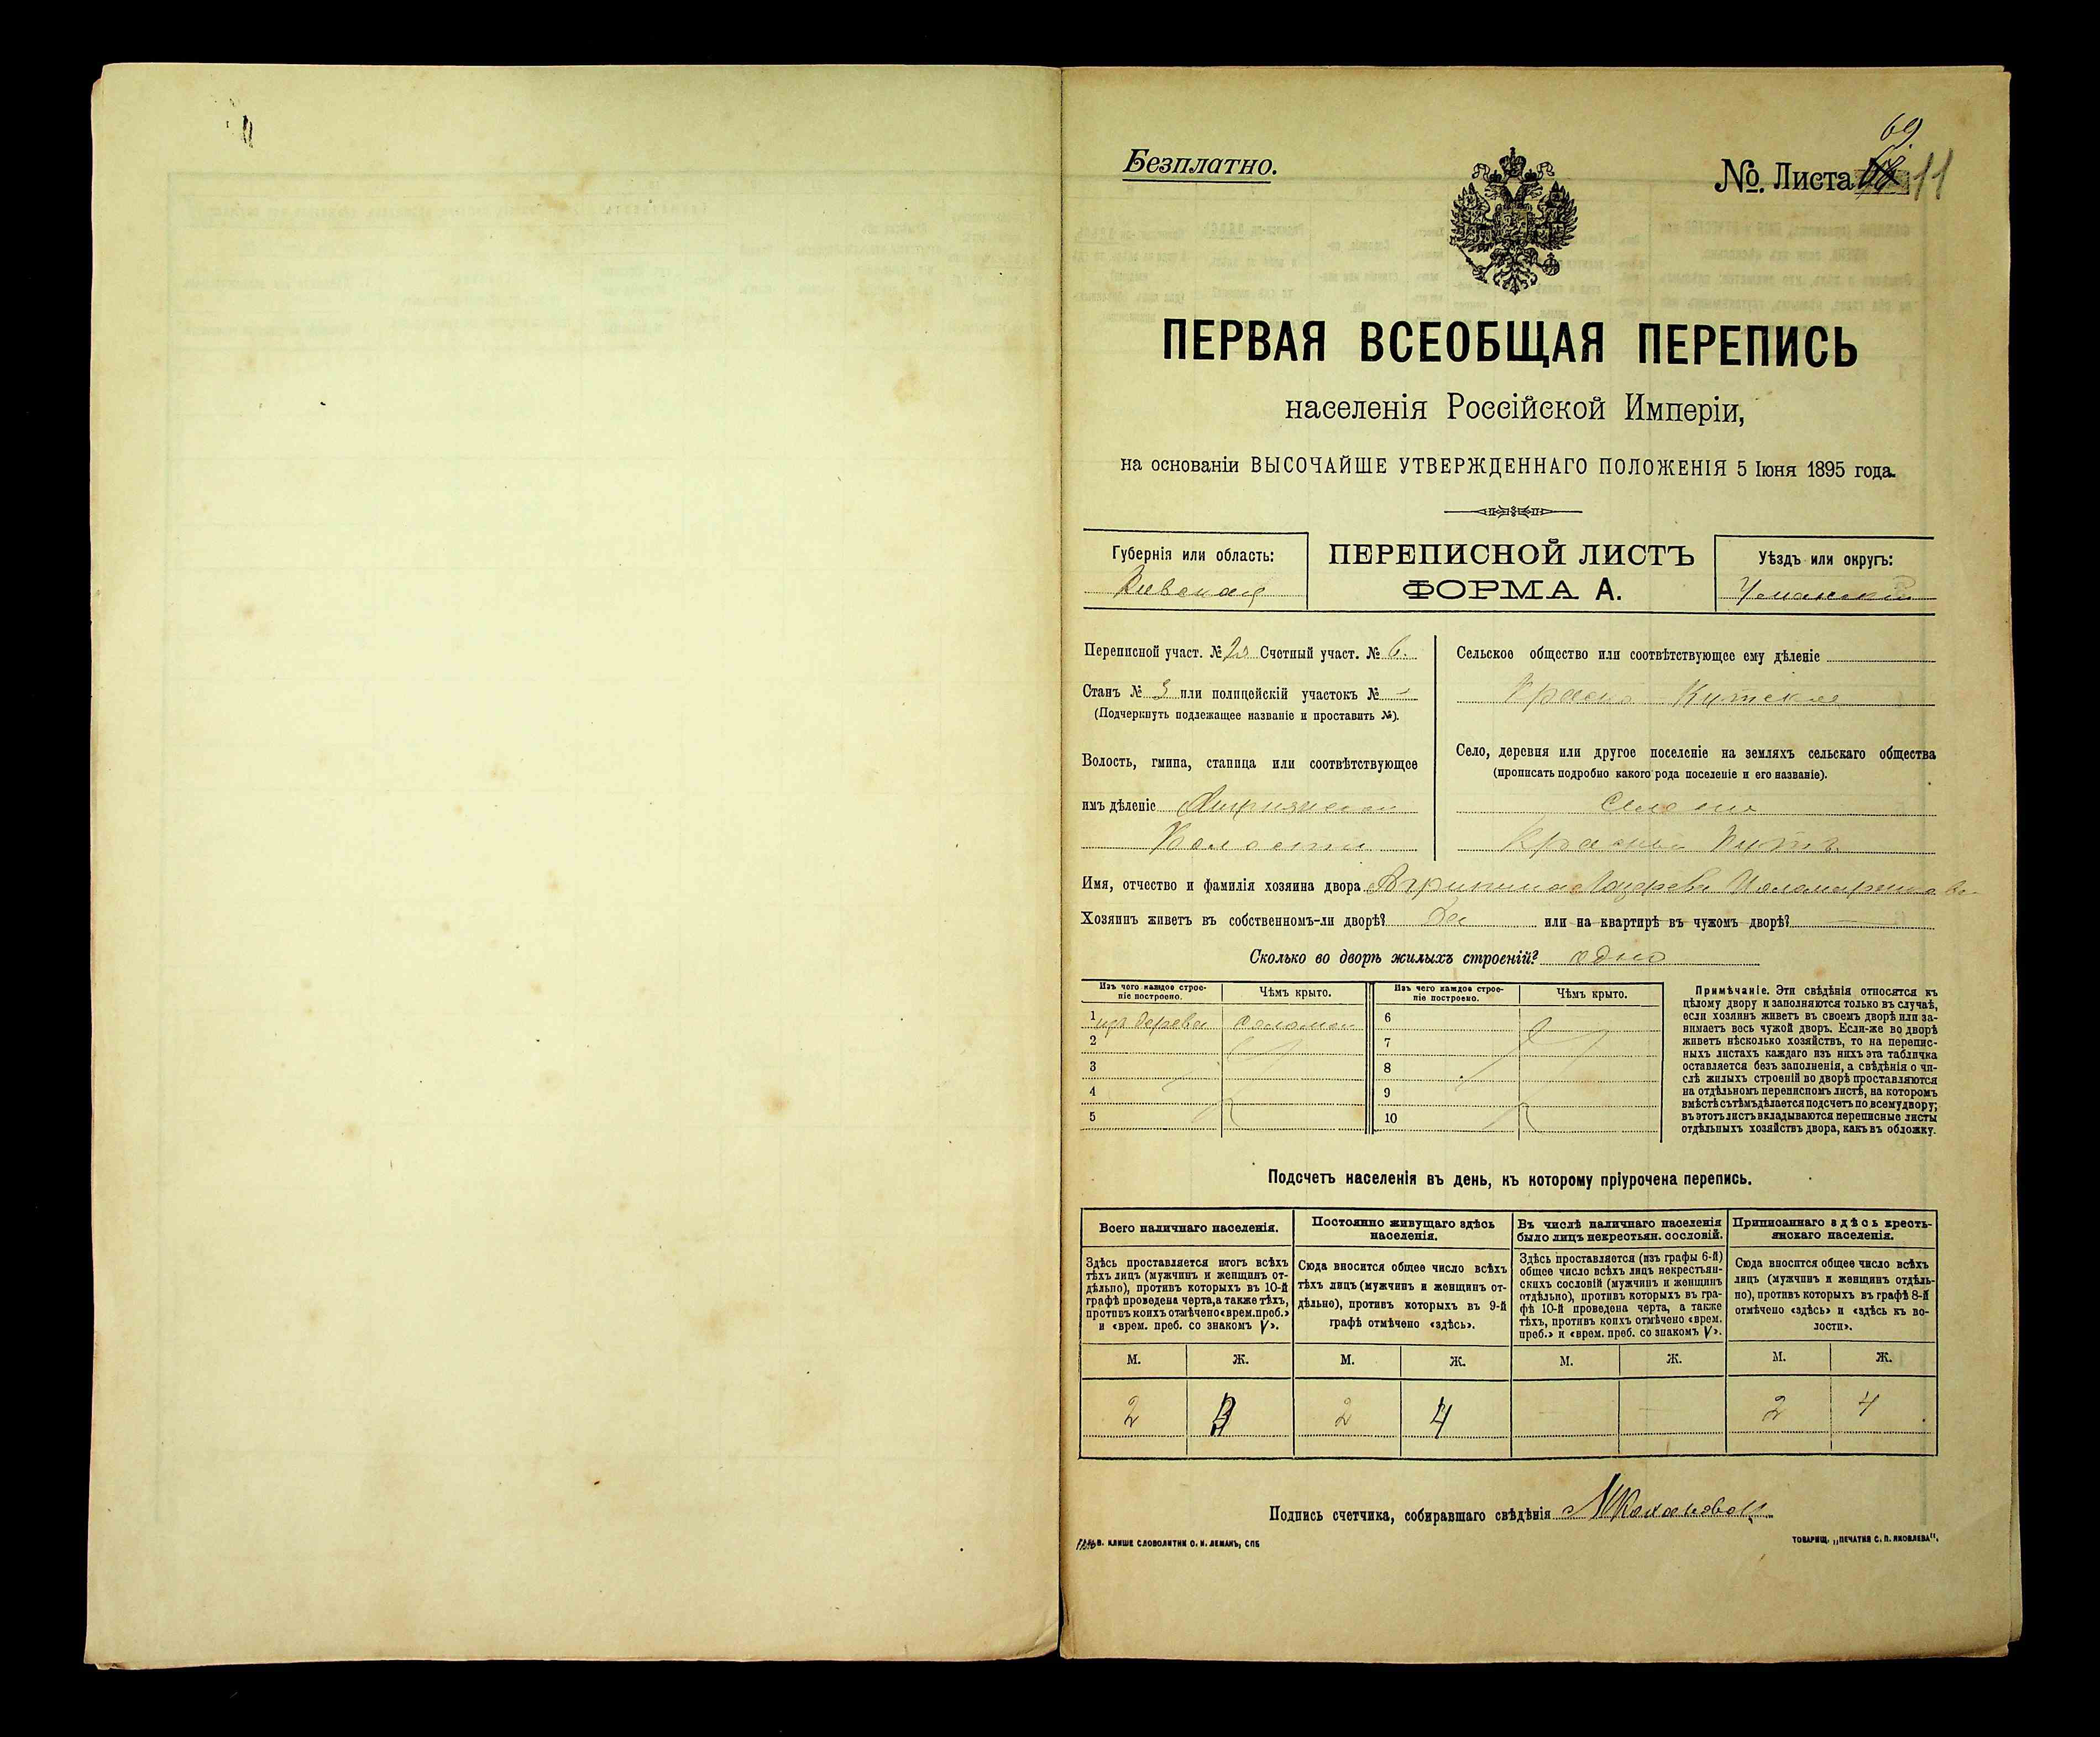 69.
Безплатно.
№ Листа 11
ПЕРВАЯ ВСЕОБЩАЯ ПЕРЕПИСЬ
населенія Россійской Имперіи,
на основаніи ВЫСОЧАЙШЕ УТВЕРЖДЕННАГО ПОЛОЖЕНІЯ 5 Іюня 1895 года.
Губернія или область:
Кіевская
ПЕРЕПИСНОЙ ЛИСТЪ
ФОРМА А.
Уѣздъ или округъ:
Уманскій
Переписной участ. № Счетный участ. № 6.
Станъ № 3 или полицейскій участокъ № -
(Подчеркнуть подлежащее названіе и проставить №).
Волость, гмина, станица или соотвѣтствующее
имъ дѣленіе
Волости
Сельское общество или соотвѣтствующее ему дѣленіе
Красно Кутское
Село, деревня или другое поселеніе на земляхъ сельскаго общества
(прописать подробно какого рода поселеніе и его названіе).
Селеніе
Красный Кутъ
Имя, отчество и фамилія хозяина двора
Хозяинъ живетъ въ собственномъ-ли дворѣ? Да или на квартирѣ въ чужомъ дворѣ?
Сколько во дворѣ жилыхъ строеній? одно
Изъ чего каждое строе-
ніе построено.
Чѣмъ крыто.
1 изъ дерева соломой
2
3
4
5
Изъ чего каждое строе-
ніе построено.
Чѣмъ крыто.
6
7
8
9
10
Примѣчаніе. Эти свѣдѣнія относятся къ
цѣлому двору и заполняются только въ случаѣ,
если хозяинъ живетъ въ своемъ дворѣ или за-
нимаетъ весь чужой дворъ. Если-же во дворѣ
живетъ нѣсколько хозяйствъ, то на перепис-
ныхъ листахъ каждаго изъ нихъ эта табличка
оставляется безъ заполненія, а свѣдѣнія о чи-
слѣ жилыхъ строеній во дворѣ проставляются
на отдѣльномъ переписномъ листѣ, на которомъ
вмѣстѣ съ тѣмъ дѣлается подсчетъ по всему двору;
въ этотъ листъ вкладываются переписные листы
отдѣльныхъ хозяйствъ двора, какъ въ обложку.
Подсчетъ населенія въ день, къ которому пріурочена перепись.
Всего наличнаго населенія.
Здѣсь проставляется итогъ всѣхъ
тѣхъ лицъ (мужчинъ и женщинъ от-
дѣльно), противъ которыхъ въ 10-й
графѣ проведена черта, а также тѣхъ,
противъ коихъ отмѣчено «врем. преб.»
и «врем. преб. со знакомъ V».
М. Ж.
2
Постоянно живущаго здѣсь
населенія.
Сюда вносится общее число всѣхъ
тѣхъ лицъ (мужчинъ и женщинъ от-
дѣльно), противъ которыхъ въ 9-й
графѣ отмѣчено «здѣсь».
М. Ж.
2 4
Въ числѣ наличнаго населенія
было лицъ некрестьян. сословій.
Здѣсь проставляется (изъ графы 6-й)
общее число всѣхъ лицъ некрестьян-
скихъ сословій (мужчинъ и женщинъ
отдѣльно), противъ которыхъ въ гра-
фѣ 10-й проведена черта, а также
тѣхъ, противъ коихъ отмѣчено «врем.
преб.» и «врем. преб. со знакомъ V».
М. Ж.
Приписаннаго здѣсь кресть-
янскаго населенія.
Сюда вносится общее число всѣхъ
лицъ (мужчинъ и женщинъ отдѣль-
но), противъ которыхъ въ графѣ 8-й
отмѣчено «здѣсь» и «здѣсь къ во-
лости».
М. Ж.
2 4
Подпись счетчика, собиравшаго свѣдѣнія
КЛИШЕ СЛОВОЛИТНИ О. И. ЛЕМАНЪ, СПБ
ТОВАРИЩ. „ПЕЧАТНЯ С. П. ЯКОВЛЕВА".